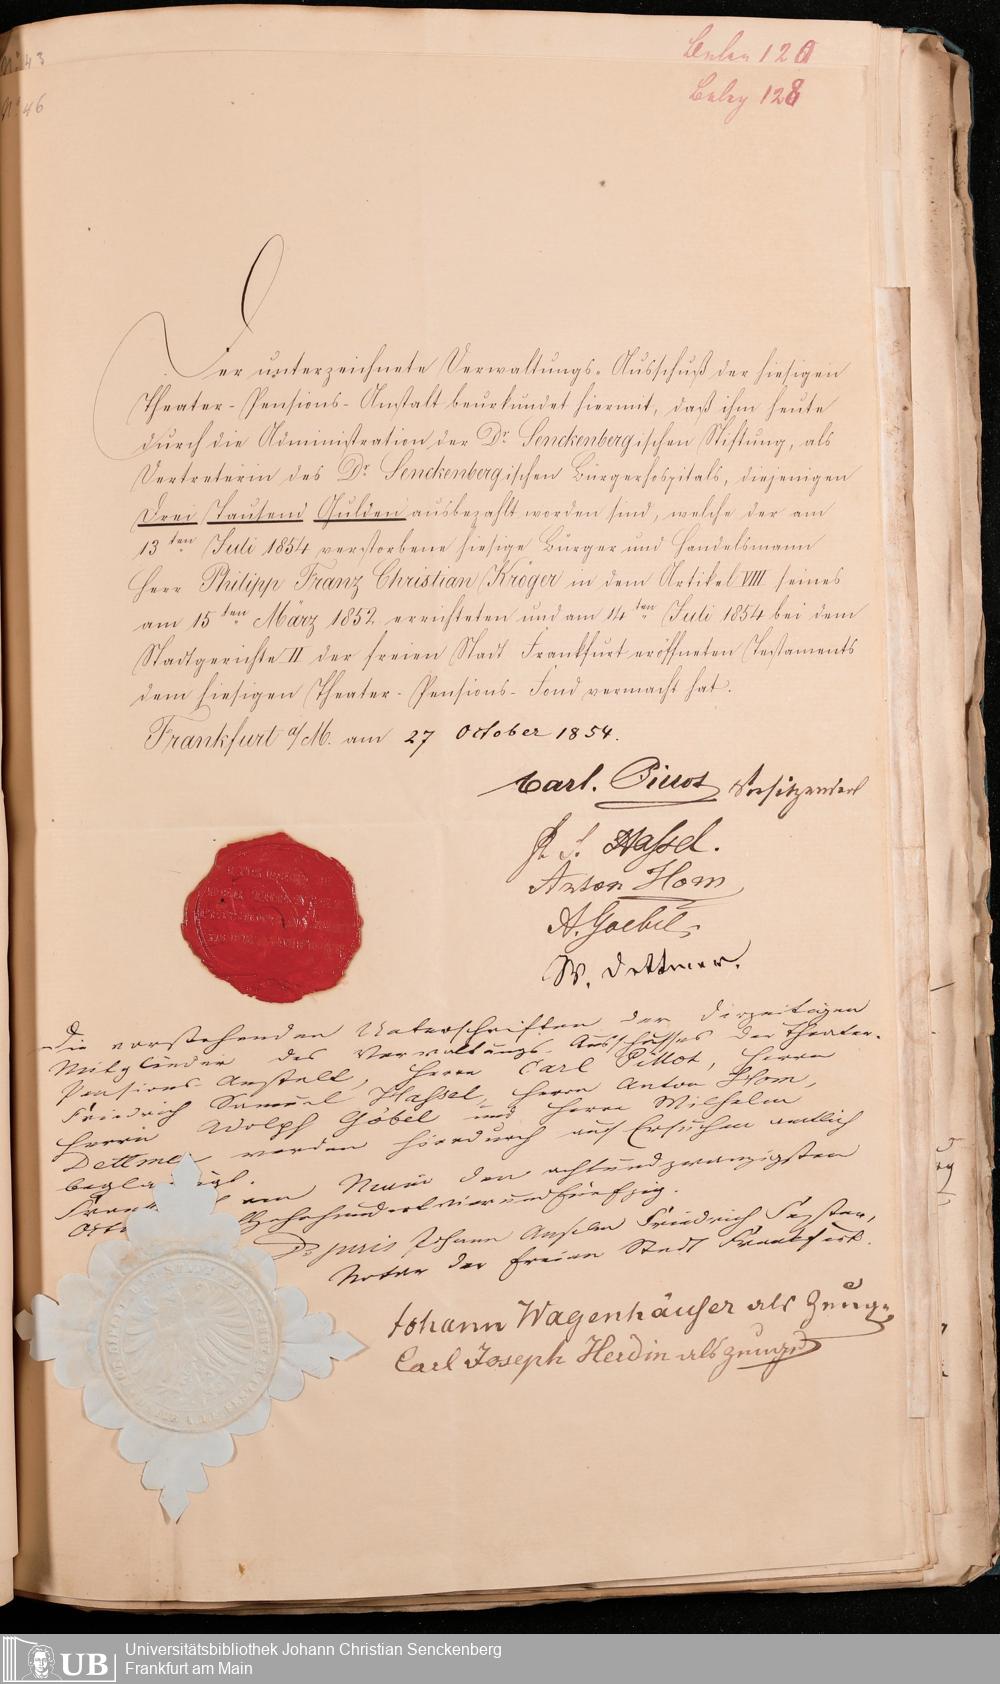 43
46
Beleg 128
Der unterzeichnete Verwaltungs-Ausschuß der hiesigen
Theater-Pensions-Anstalt beurkundet hiermit, daß ihm heute
durch die Administration der Dr. Senckenbergischen Stiftung, als
Vertreterin des Dr. Senckenbergischen Bürgerhospitals, diejenigen
Drei Tausend Gulden ausbezahlt worden sind, welche der am
13ten Juli 1854 verstorbene hiesige Bürger und Handelsmann
Herr Philipp Franz Christian Kröger in dem Artikel VIII seines
am 15ten März 1852 errichteten und am 14ten Juli 1854 bei dem
Stadtgerichte II der freien Stadt Frankfurt eröffneten Testaments
dem hiesigen Theater-Pensions-Fond vermacht hat.
Frankfurt a/M. am 27 October 1854.
Carl. Vorsitzender
Hassel.
Anton Hom
A. Goebel
W. Dettmer.
Die vorstehenden Unterschriften der derzeitigen
Mitglieder des Verwaltungs-Ausschusses der Theater-
Pensions-Anstalt, Herrn Carl Pillot, Herrn
Friedrich Samuel Hassel, Herrn Anton Hom,
Herrn Adolph Göbel und Herrn Wilhelm
Dettmer werden hierdurch auf Ersuchen amtlich
am Main den achtundzwanzigsten
vierundfünfzig.
Dr. juris Johann Anselm Friedrich
Notar der freien Stadt Frankfurt.
Johann Wagenhäuser als Zeuge
Carl Joseph Herdin als Zeuge
UB
Universitätsbibliothek Johann Christian Senckenberg
Frankfurt am Main